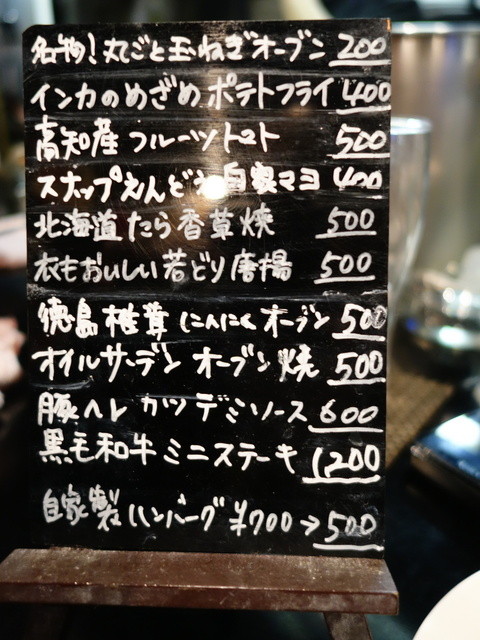 名物!丸ごと玉ねぎオーブン 200
インカのめざめ ポテトフライ 400
高知産 フルーツトマト 500
スナップえんどう 自家マヨ 400
北海道たら香草焼 500
衣もおいしい若どり唐揚 500
徳島椎茸 にんにくオーブン 500
オイルサーデン オーブン焼 500
豚ヘレ カツ デミソース 600
黒毛和牛ミニステーキ 1200
自家製ハンバーグ ¥700→500